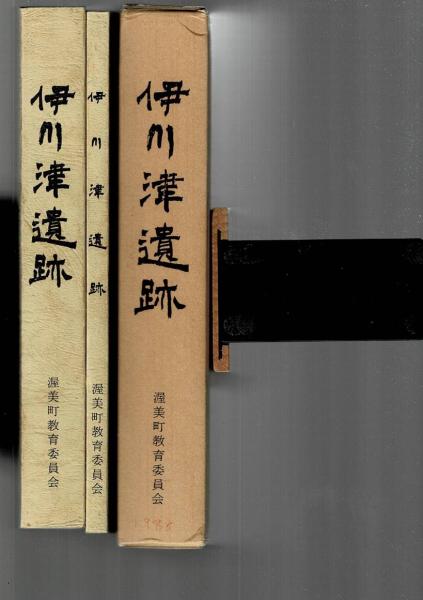 伊川津遺跡
渥美町教育委員会
伊川津遺跡
渥美町教育委員会
伊川津遺跡
渥美町教育委員会